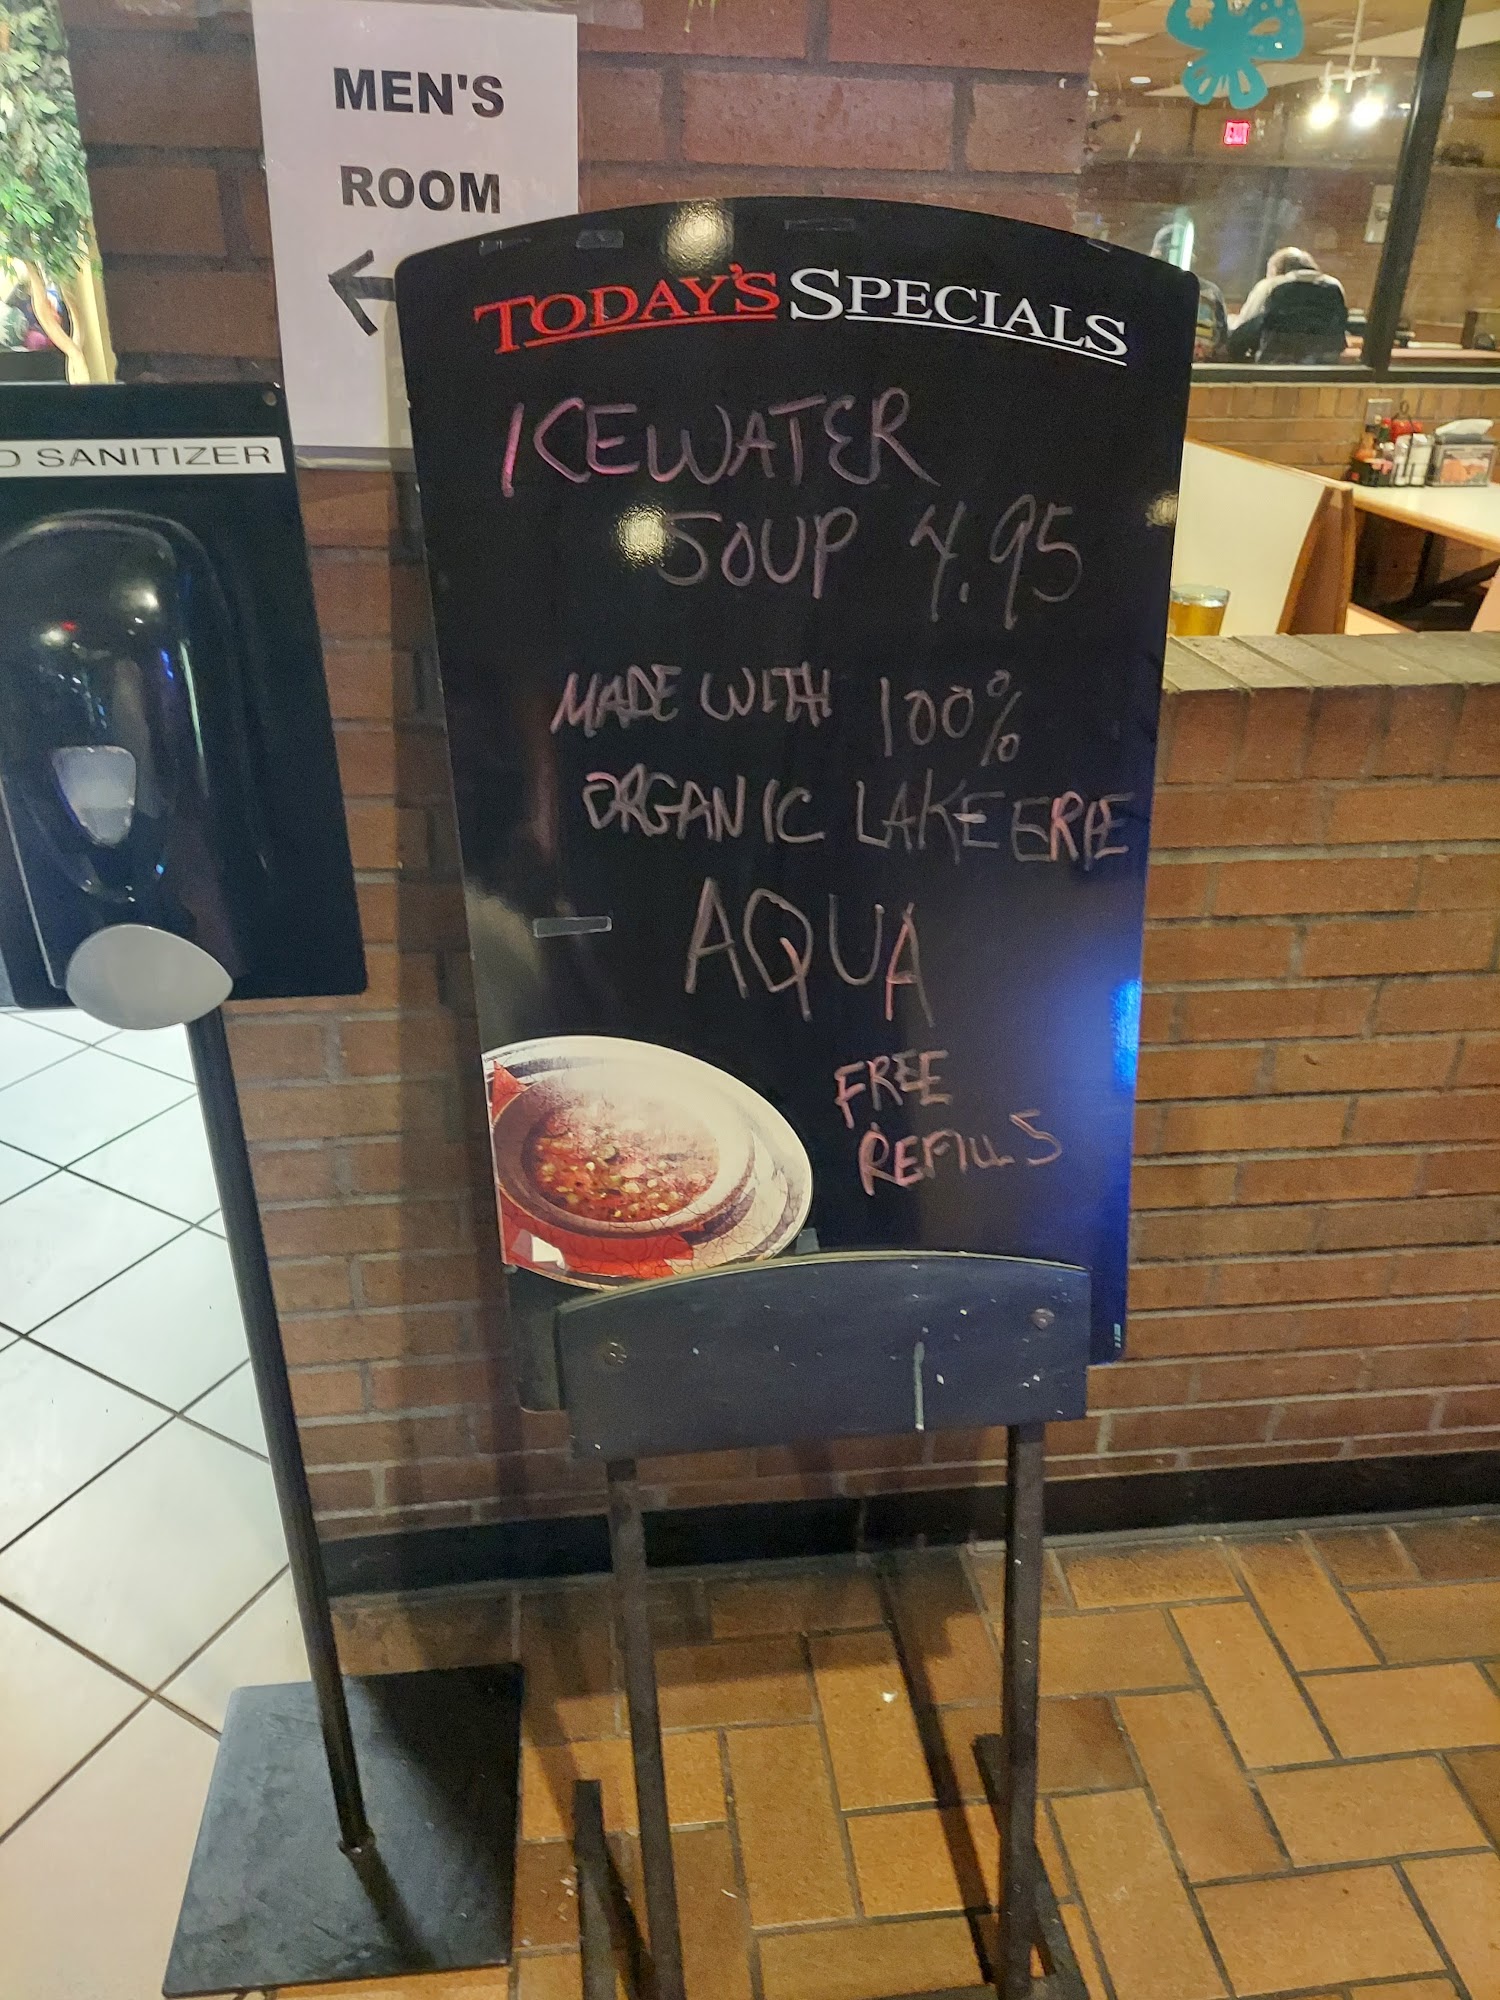 MEN'S
ROOM
EXIT
SANITIZER
TODAY'S SPECIALS
ICEWATER
SOUP 4.95
MADE WITH 100%
ORGANIC LAKE ERIE
AQUA
FREE
REFILLS